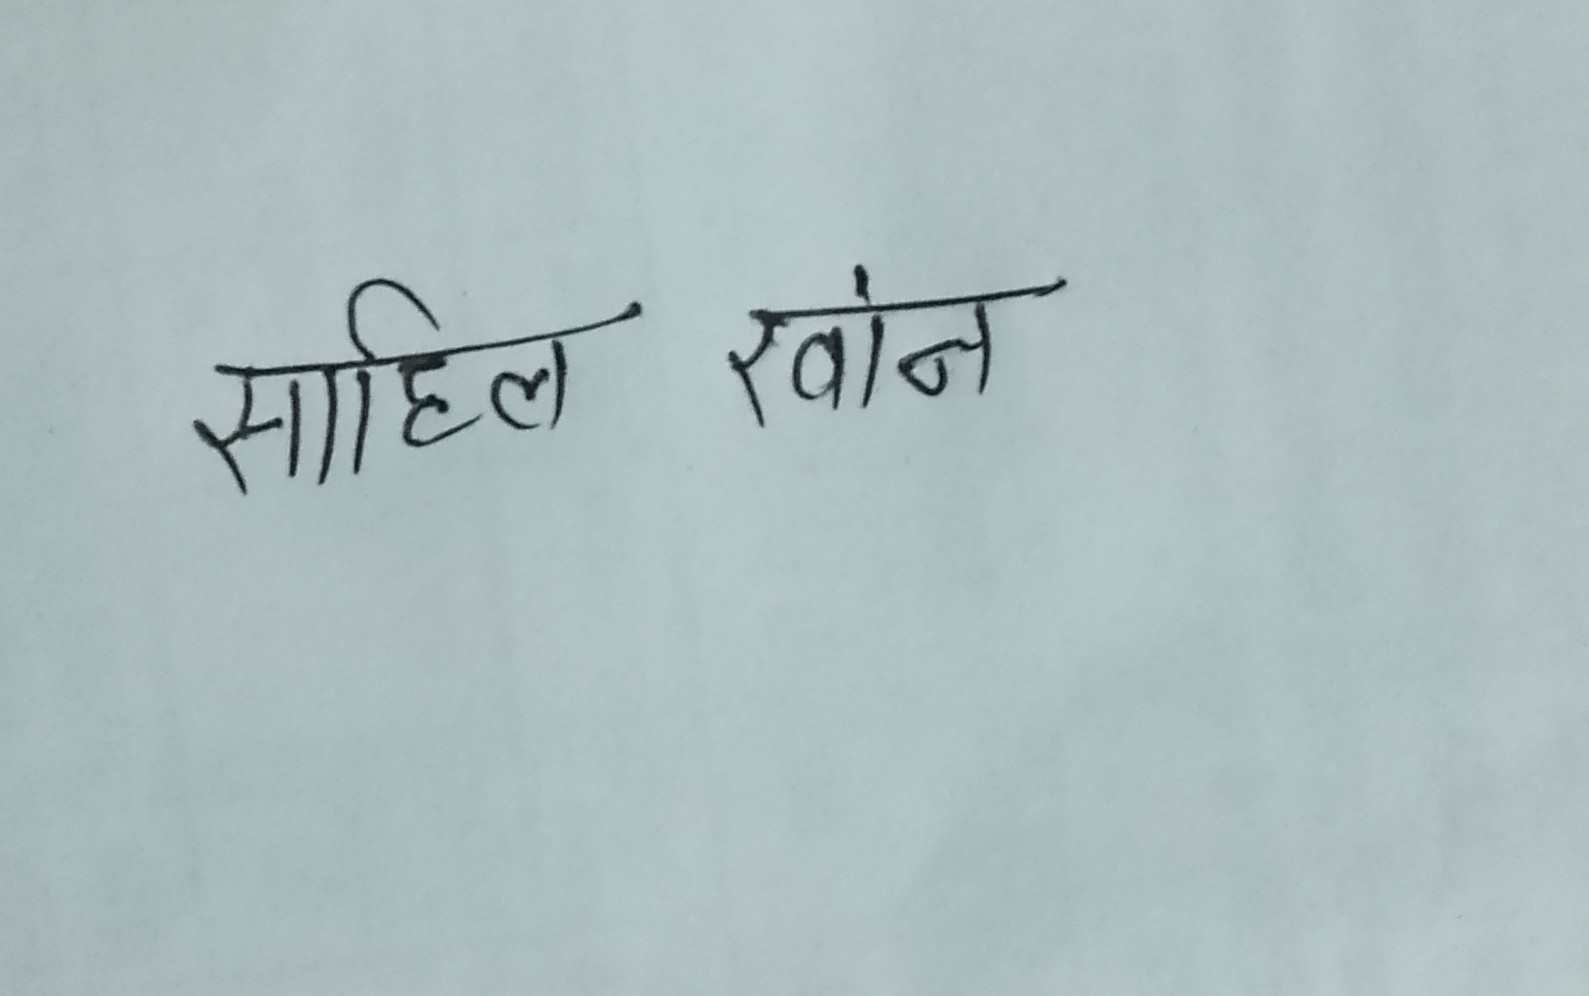 साहिल खांन